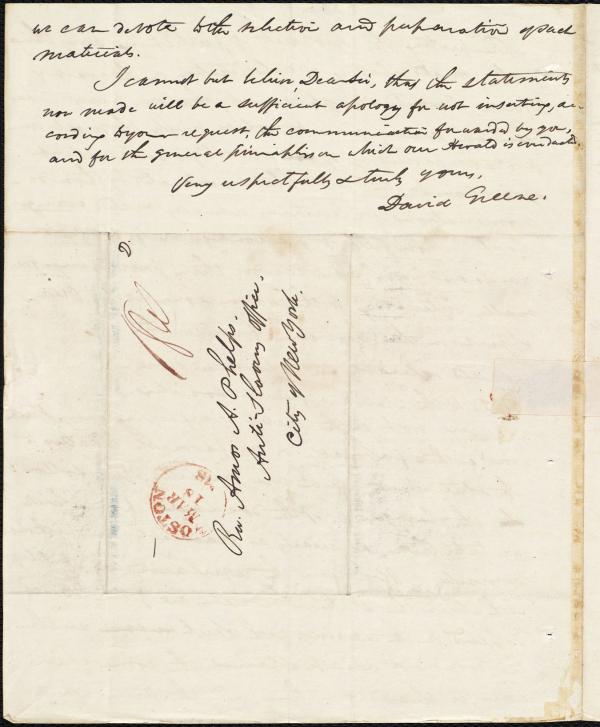 we can devote to the selection and preparation of such
materials.
I cannot but believe, Dear Sir, that the statements
now made will be a sufficient apology for not inserting, ac-
cording to your request, the communication forwarded by you,
and for the general principles on which our Herald is conducted.
Very respectfully & truly yours,
David Greene.
D.
Rev. Amos A. Phelps.
Anti-Slavery Office,
City of New York.
BOSTON
MAR
18
MS